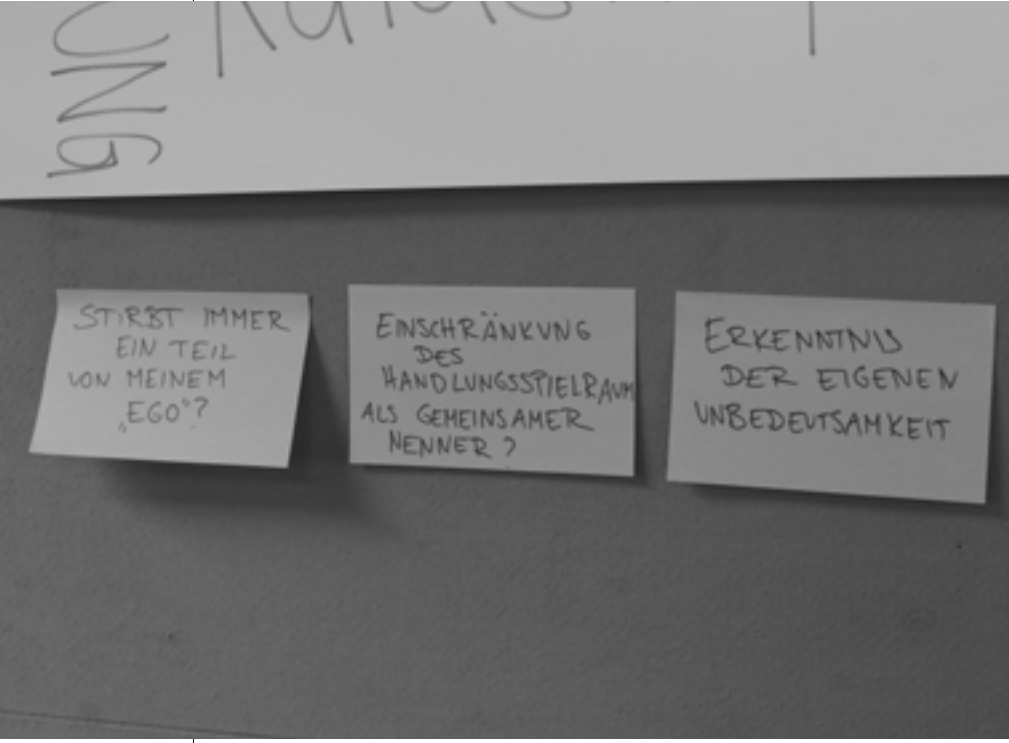 UNG
STIRBT IMMER
EIN TEIL
VON MEINEM
„EGO"?
EINSCHRÄNKUNG
DES
HANDLUNGSSPIELRAUM
ALS GEMEINSAMER
NENNER?
ERKENNTNIS
DER EIGENEN
UNBEDEUTSAMKEIT